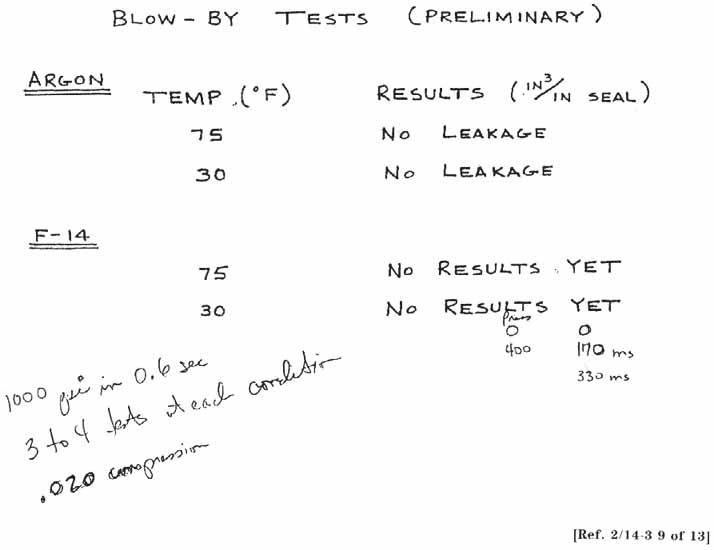 BLOW-BY TESTS (PRELIMINARY)
ARGON TEMP. (°F) RESULTS (IN³/IN SEAL)
75 NO LEAKAGE
30 NO LEAKAGE
F-14
75 NO RESULTS YET
30 NO RESULTS YET
Press
0 0
400 170 ms
330 ms
1000 psi in 0.6 sec
3 to 4 tests at each condition
.020 compression
[Ref. 2/14-3 9 of 13]